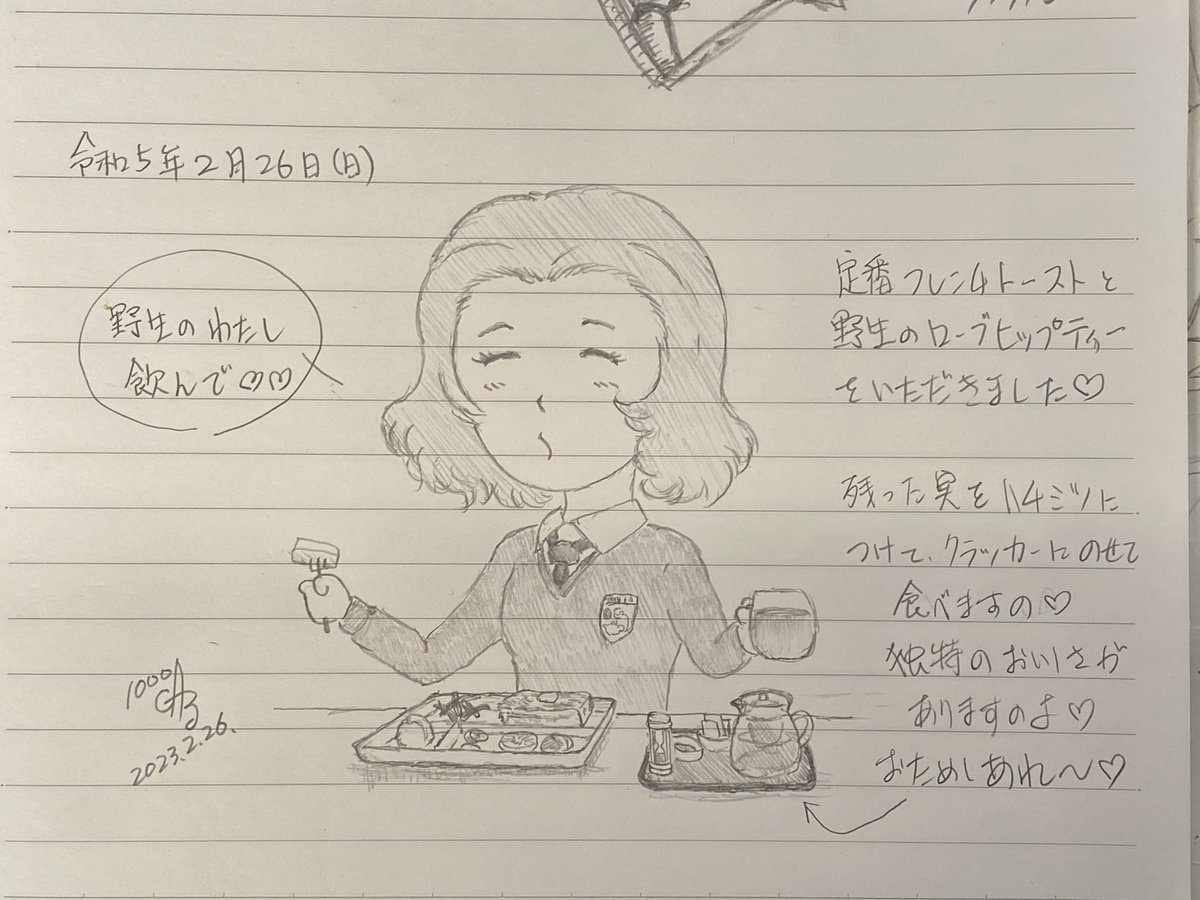 令和5年2月26日(日)
野生のわたし
飲んで♡♡
定番フレンチトーストと
野生のローブヒップティー
をいただきました♡
残った実をハチミツに
つけて、クラッカーにのせて
食べますの♡
独特のおいしさが
ありますのよ♡
おためしあれ〜♡
1000
2023.2.26.